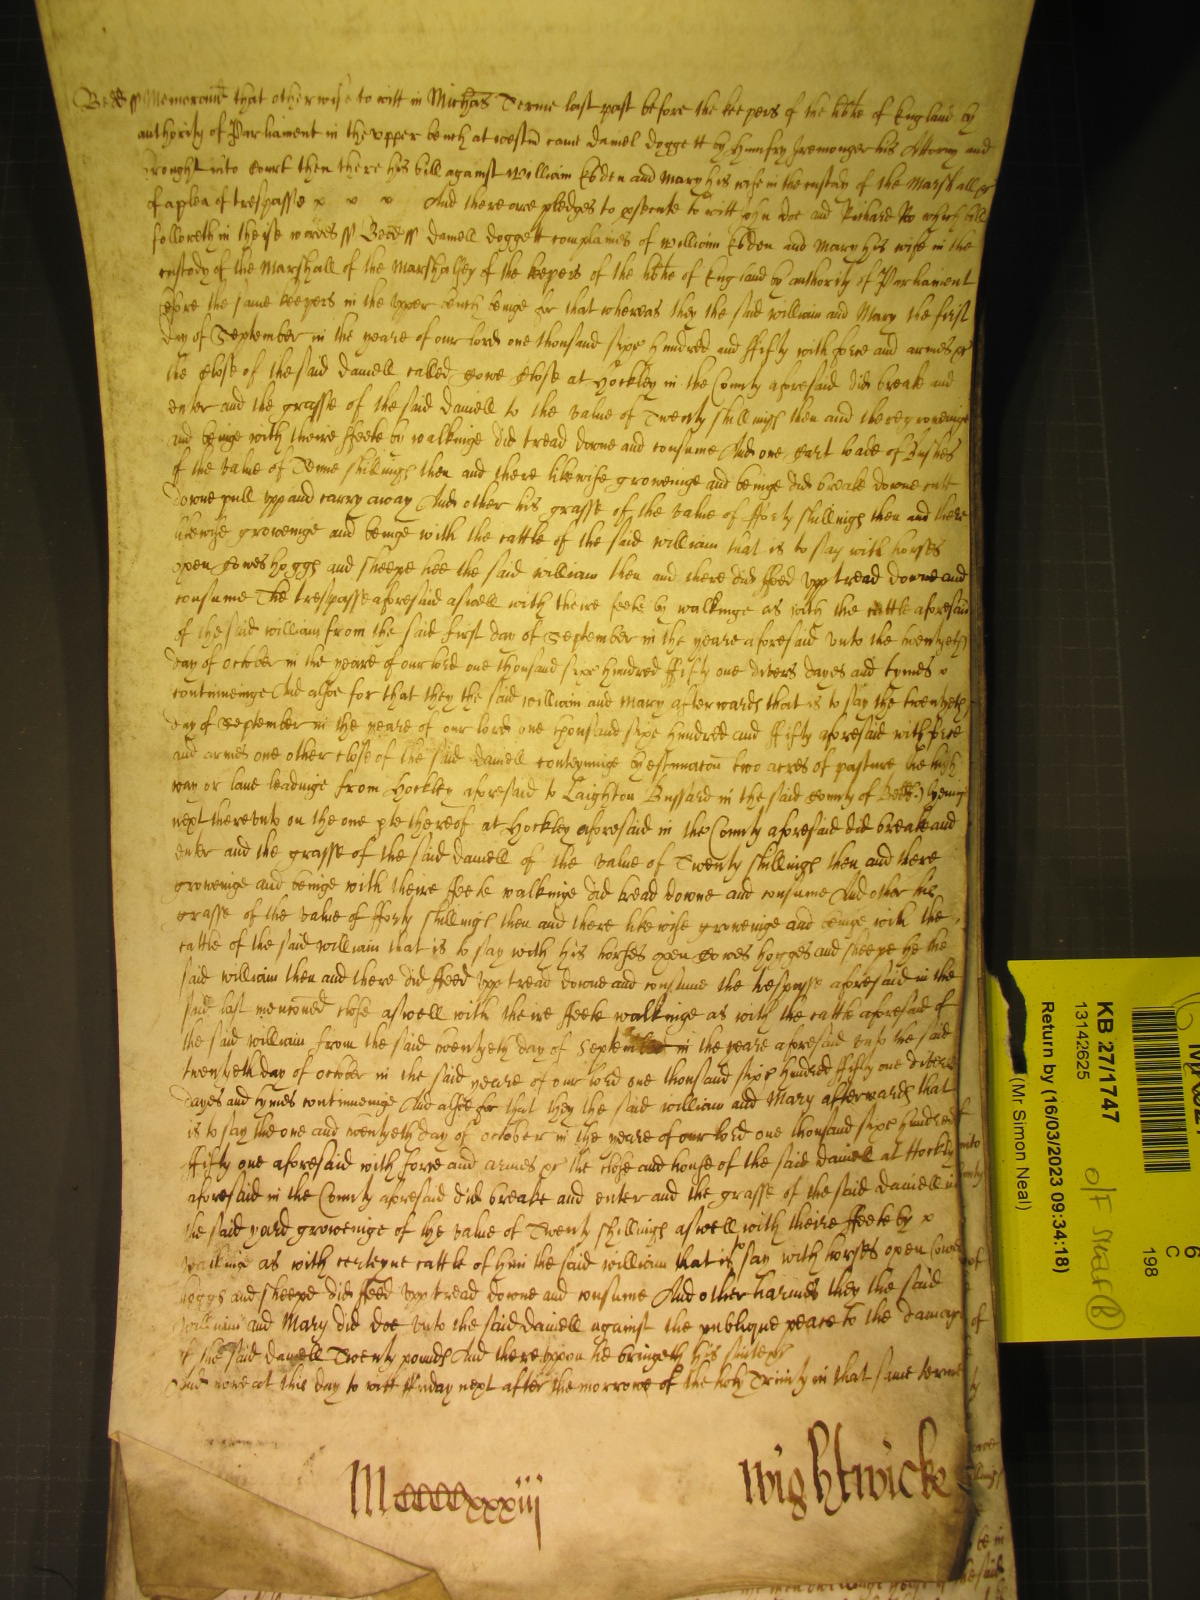 Bedd ss Memorand that otherwise to witt in Michas Terme last past before the keepers of the libtie of England by
authority of Parliament in the upper bench at westm came Daniell Doggett by Humfry Iremonger his Attorny and
brought into Court then there his bill against William Ebden and Mary his wife in the custody of the Marshall &c
of a plea of trespasse x x x And there are pledges to prosecute to witt John Doe and Richard Roo which bill
followeth in theise wordes ss Bedd ss Daniell Doggett complaines of William Ebden and Mary his wife in the
custody of the Marshall of the Marshalsey of the keepers of the libtie of England by authority of Parliament
before the same keepers in the upper bench beinge for that whereas they the said William and Mary the first
day of September in the yeare of our lord one thousand sixe hundred and ffifty with force and armes &c
the Close of the said Daniell called Cowe Close at Hockley in the County aforesaid did breake and
enter and the grasse of the said Daniell to the value of Twenty shillings then and there groweinge
and beinge with theire ffeete by walkinge did tread downe and consume And one Cart loade of Bushes
of the value of Tenne shillings then and there likewise groweinge and beinge did breake downe cutt
downe pull upp and carry away And other his grasse of the value of fforty shillings then and there
likewise groweinge and beinge with the cattle of the said William that is to say with horses
oxen Cowes hoggs and sheepe hee the said William then and there did ffeed upp tread downe and
consume The trespasse aforesaid aswell with theire feete by walkinge as with the cattle aforesaid
of the said William from the said first day of September in the yeare aforesaid unto the twentyeth
day of October in the yeare of our lord one thousand sixe hundred ffifty one divers dayes and tymes x
continueinge And alsoe for that they the said William and Mary afterwards that is to say the twentyeth
day of September in the yeare of our lord one thousand sixe hundred and ffifty aforesaid with force
and armes one other close of the said Daniell conteyninge by estimacon two acres of pasture the high
way or lane leadinge from Hockley aforesaid to Laighton Bussard in the said County of Bedd lyeing
next thereunto on the one pte thereof at Hockley aforesaid in the County aforesaid did breake and
enter and the grasse of the said Daniell of the value of Twenty shillings then and there
groweinge and beinge with theire ffeete walkinge did tread downe and consume And other his
grasse of the value of fforty shillings then and there likewise groweinge and beinge with the
cattle of the said William that is to say with his horses oxen Cowes hogges and sheepe he the
said William then and there did ffeed upp tread downe and consume the trespasse aforesaid in the
said last mencioned close aswell with theire ffeete walkinge as with the cattle aforesaid of
the said William from the said twentyeth day of September in the yeare aforesaid unto the said
twentyeth day of October in the said yeare of our lord one thousand sixe hundred ffifty one divers
dayes and tymes continueinge And alsoe for that they the said William and Mary afterwards that
is to say the one and twentyeth day of October in the yeare of our lord one thousand sixe hundred
ffifty one aforesaid with force and armes &c the close and house of the said Daniell at Hockley
aforesaid in the County aforesaid did breake and enter and the grasse of the said Daniell in
the said yard groweinge of the value of Twenty shillings aswell with theire ffeete by x
walkinge as with certeyne cattle of him the said William that is to say with horses oxen Cowes
hoggs and sheepe did ffeed upp tread downe and consume And other harmes they the said
William and Mary did doe unto the said Daniell against the publique peace to the damage
of the said Daniell Twenty pounds And thereuppon he bringeth his suite &c
And nowe att this day to witt ffriday next after the morrowe of the holy Trinity in that same terme
Mccccxxxiij
Wightwicke
KB 27/1747
13142625
Return by (16/03/2023 09:34:18)
(Mr Simon Neal)
O/F
6
C
198